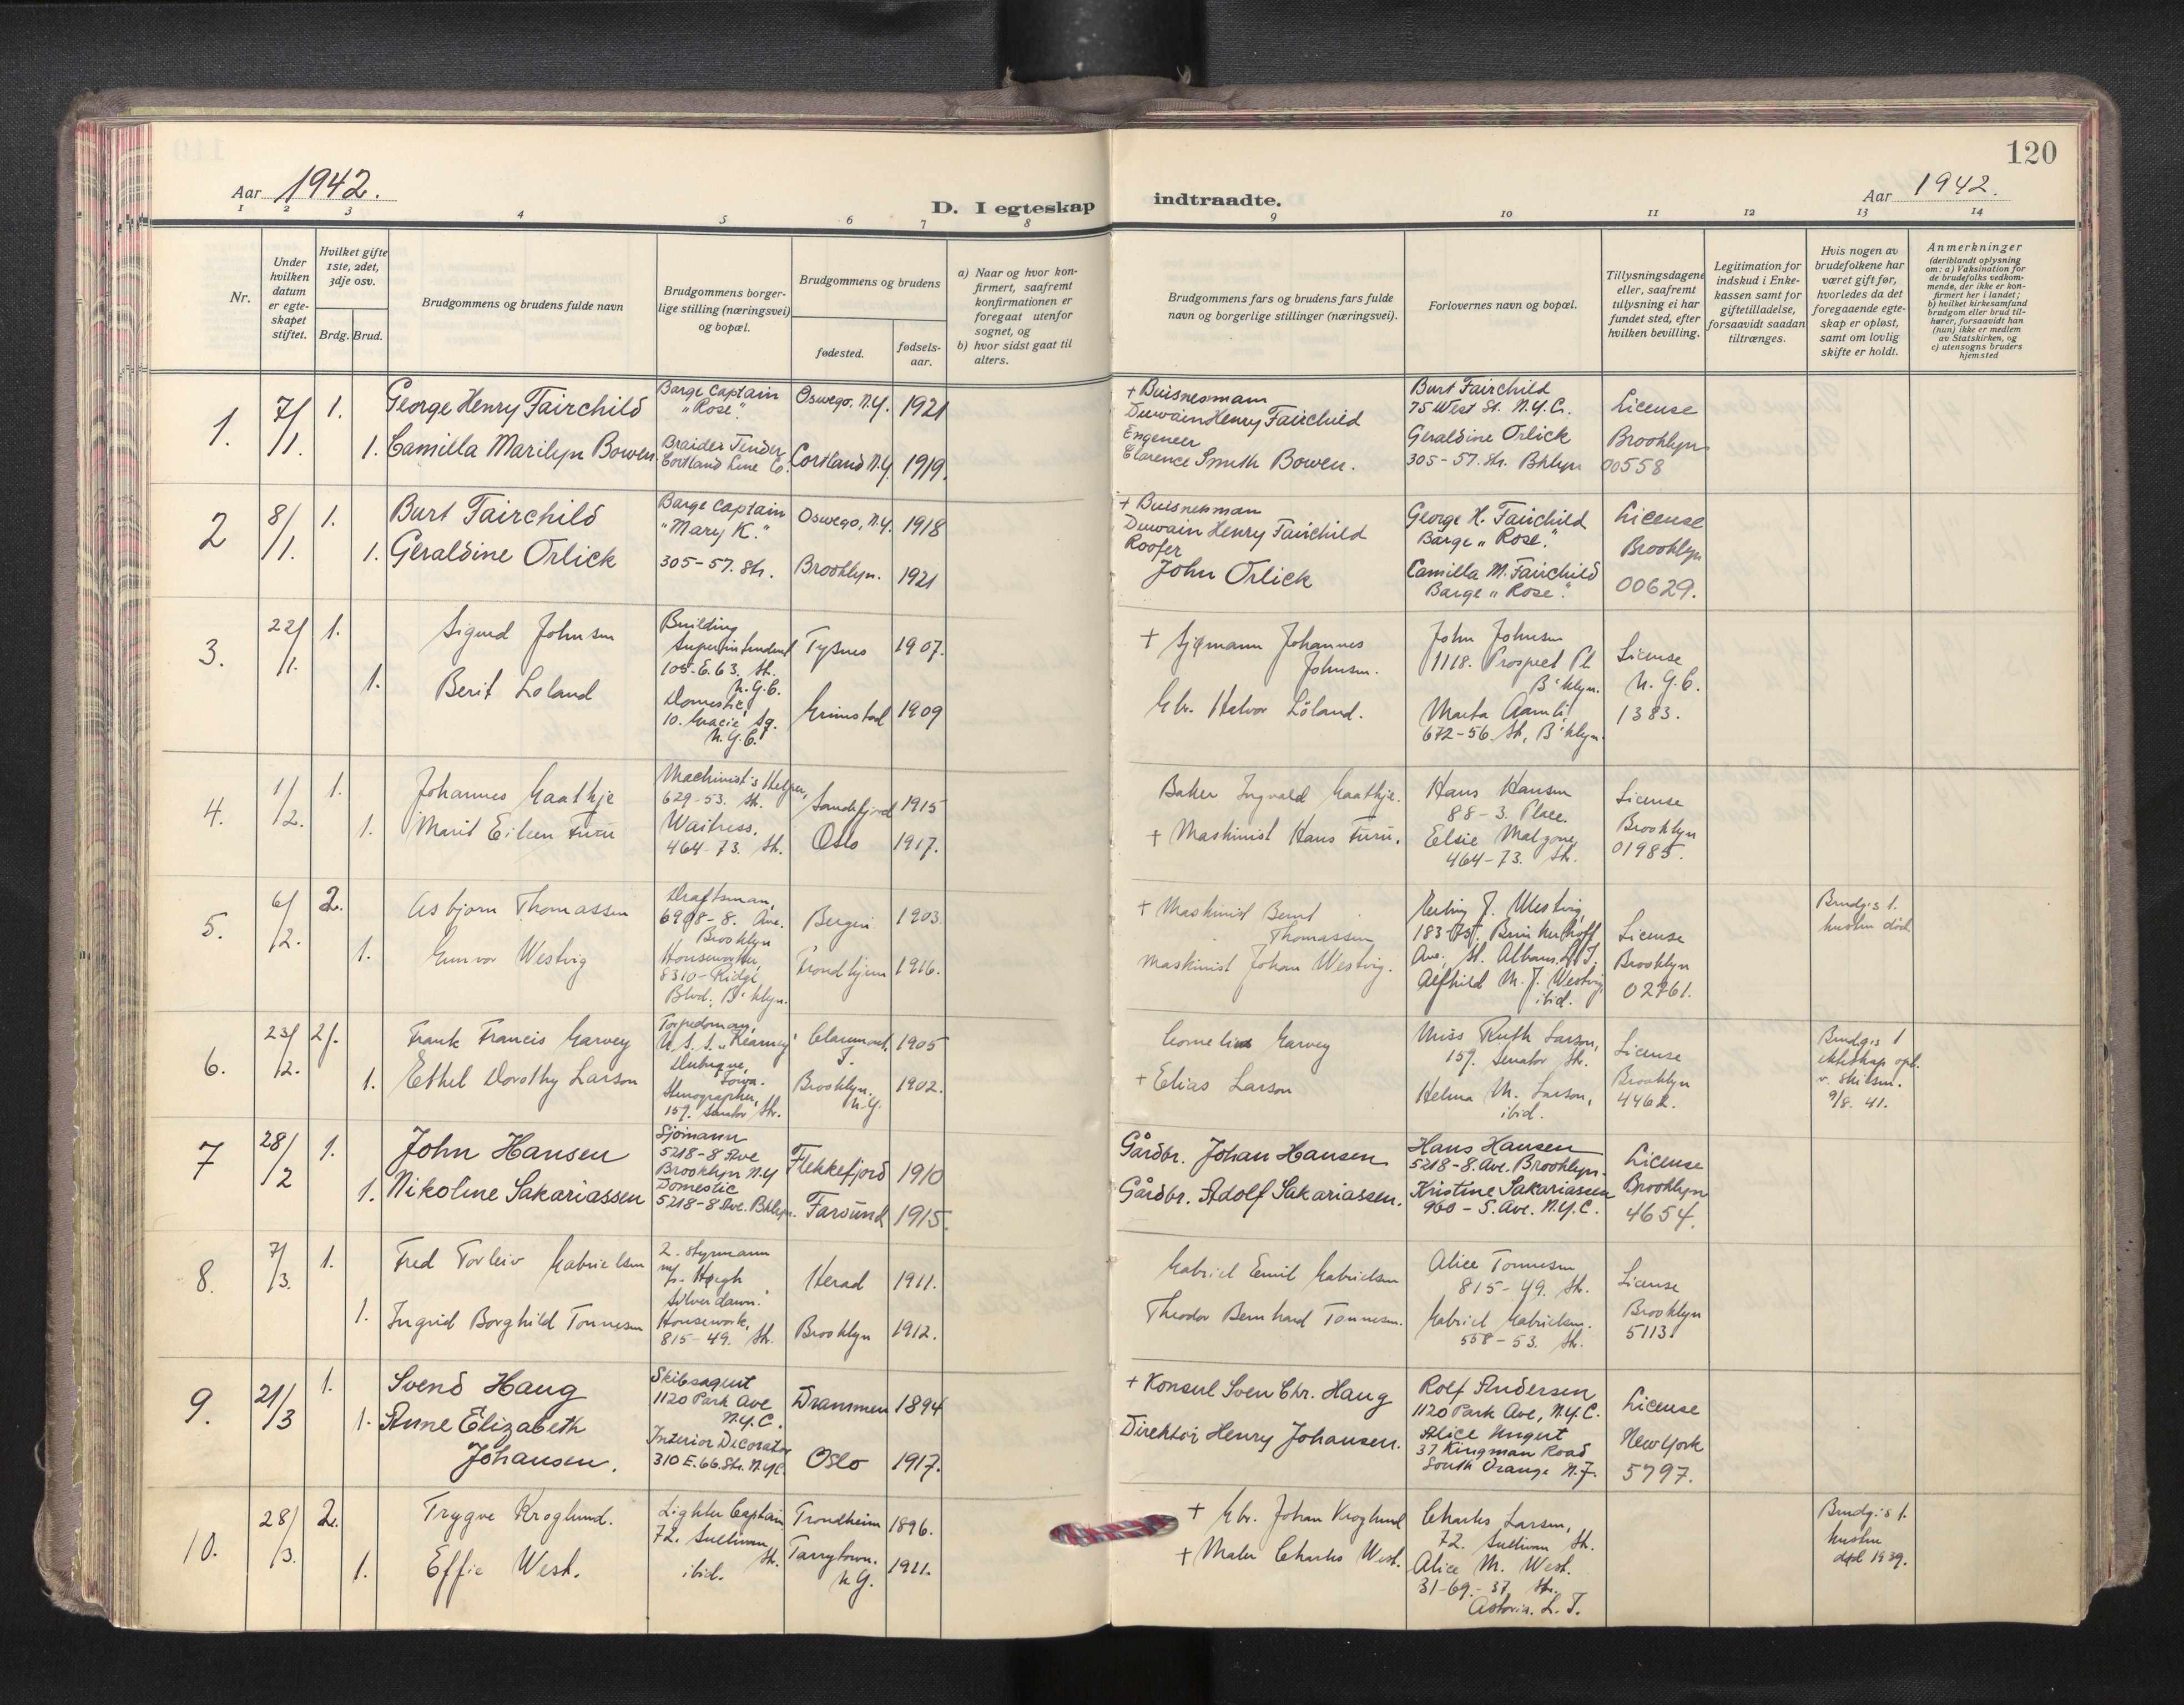 120
Aar 1942.
D. I egteskap indtraadte.
Aar 1942.
1 2 3 4 5 6 7 8 9 10 11 12 13 14
Nr.
Under
hvilken
datum
er egte-
skapet
stiftet.
Hvilket gifte
1ste, 2det,
3dje osv.
Brdg. Brud.
Brudgommens og brudens fulde navn
Brudgommens borger-
lige stilling (næringsvei)
og bopæl.
Brudgommens og brudens
fødested.
fødsels-
aar.
a) Naar og hvor kon-
firmert, saafremt
konfirmationen er
foregaat utenfor
sognet, og
b) hvor sidst gaat til
alters.
Brudgommens fars og brudens fars fulde
navn og borgerlige stillinger (næringsvei).
Forlovernes navn og bopæl.
Tillysningsdagene
eller, saafremt
tillysning ei har
fundet sted, efter
hvilken bevilling.
Legitimation for
indskud i Enke-
kassen samt for
giftetilladelse,
forsaavidt saadan
tiltrænges.
Hvis nogen av
brudefolkene har
været gift før,
hvorledes da det
foregaaende egte-
skap er opløst,
samt om lovlig
skifte er holdt.
Anmerkninger
(deriblandt oplysning
om: a) Vaksination for
de brudefolks vedkom-
mende, der ikke er kon-
firmert her i landet;
b) hvilket kirkesamfund
brudgom eller brud til-
hører, forsaavidt han
(hun) ikke er medlem
av Statskirken, og
c) utensogns bruders
hjemsted
1.
7/1.
1.
George Henry Fairchild
Barge Captain
"Rose".
Oswego, N.Y.
1921
+ Buisnesmann
Duwain Henry Fairchild
Burt Fairchild
75 West St. N.Y.C.
License
Brooklyn
00558
1.
Camilla Marilyn Bowen
Braider Tender
Cortland Line Co.
Cortland N.Y.
1919.
Engeneer
Clarence Smith Bowen.
Geraldine Orlick
305-57. Str. Bklyn
2
8/1.
1.
Burt Fairchild
Barge Captain
"Mary K."
Oswego, N.Y.
1918
+ Buisnesman
Duwain Henry Fairchild
George H. Fairchild
Barge "Rose".
License
Brooklyn
00629.
1.
Geraldine Orlick
305-57. Str.
Brooklyn.
1921
Roofer
John Orlick
Camilla M. Fairchild
Barge "Rose".
3.
22/1.
1.
Sigurd Johnsen
Building
Superintendent
105-E. 63. St.
N.Y.C.
Tysnes
1907.
+ Sjømann Johannes
Johnsen.
John Johnsen
1118. Prospect Pl
B'klyn.
License
N.Y.C.
1383.
1.
Berit Loland
Domestic,
10. Gracie Sq.
N.Y.C.
Grimstad
1909
Gbr. Halvor Löland.
Marta Aamli
672-56. St, B'klyn.
4.
1/2.
1.
Johannes Gaathje
Machinist's Helper,
629-53. St.
Sandefjord
1915
Baker Ingvald Gaathje.
Hans Hansen
88-3. Place.
License
Brooklyn
01985.
1.
Marit Eileen Furu
Waitress,
464-73. St.
Oslo
1917.
+ Maskinist Hans Furu.
Elsie Malzone
464-73. St.
5.
6/2.
2.
Asbjørn Thomassen
Draftsman,
6908-8. Ave.
Brooklyn
Bergen
1903.
+ Maskinist Bernt
Thomassen
J. Westvig,
183-
Ave, St. Albans. L.I.
License
Brooklyn
02761.
Brudg.s 1.
hustru død
1.
Gunvor Westvig
Houseworker,
8310-Ridge
Blvd., B'klyn.
Trondhjem
1916.
Maskinist Johan Westvig.
Alfhild M. J. Westvig,
ibid.
6.
23/2.
2.
Frank Francis Garvey
Torpedoman,
U.S.S. "Kearney"
Dubuque,
Iowa.
Claremont,
I.
1905
Cornelius Garvey
Miss Ruth Larson,
159. Senator Str.
License
Brooklyn
4462.
Brudg.s 1
ekteskap opl.
v. skilsm.
9/8. 41.
1.
Ethel Dorothy Larson
Stenographer,
159. Senator Str.
Brooklyn.
N.Y.
1902.
+ Elias Larson
Helma M. Larson,
ibid.
7
28/2
1.
John Hansen
Sjömann
5218-8 Ave
Brooklyn N.Y
Flekkefjord
1910
Gårdbr. Johan Hansen
Hans Hansen
5218-8. Ave. Brooklyn.
License
Brooklyn
4654.
1.
Nikoline Sakariassen
Domestic
5218-8 Ave. Bklyn.
Farsund
1915.
Gårdbr. Adolf Sakariassen.
Kristine Sakariassen
960-5. Ave. N.Y.C.
8.
7/3.
1.
Fred Torleiv Gabrielsen
2. styrmann
m/s. "Høegh
Silverdawn."
Herad
1911.
Gabriel Emil Gabrielsen
Alice Tonnesen
815-49. St.
License
Brooklyn
5113.
1.
Ingrid Borghild Tonnesen
Housework,
815-49. St.
Brooklyn
1912.
Theodor Bernhard Tonnesen.
Gabriel Gabrielsen.
558-53. St.
9.
21/3
1.
Svend Haug
Skibsagent
1120 Park Ave
N.Y.C.
Drammen
1894
+ Konsul Sven Chr. Haug
Rolf Andersen
1120 Park Ave, N.Y.C.
License
New York
5797.
1.
Anne Elizabeth
Johansen.
Interior Decorator
310 E. 66. Str. N.Y.C.
Oslo
1917.
Direktör Henry Johansen.
Alice Ungut
37 Kingman Road
South Orange N.J.
10.
28/3.
2.
Trygve Kroglund.
Lighter Captain
72. Sullivan
St.
Trondheim
1896.
+ Gbr. Johan Kroglund
Charles Larsen,
72. Sullivan St.
Brudg.s 1.
hustru
død 1939.
1.
Effie West.
ibid.
Tarrytown.
N.Y.
1911.
+ Maler Charles West.
Alice M. West.
31-69.-37. St.
Astoria. L.I.